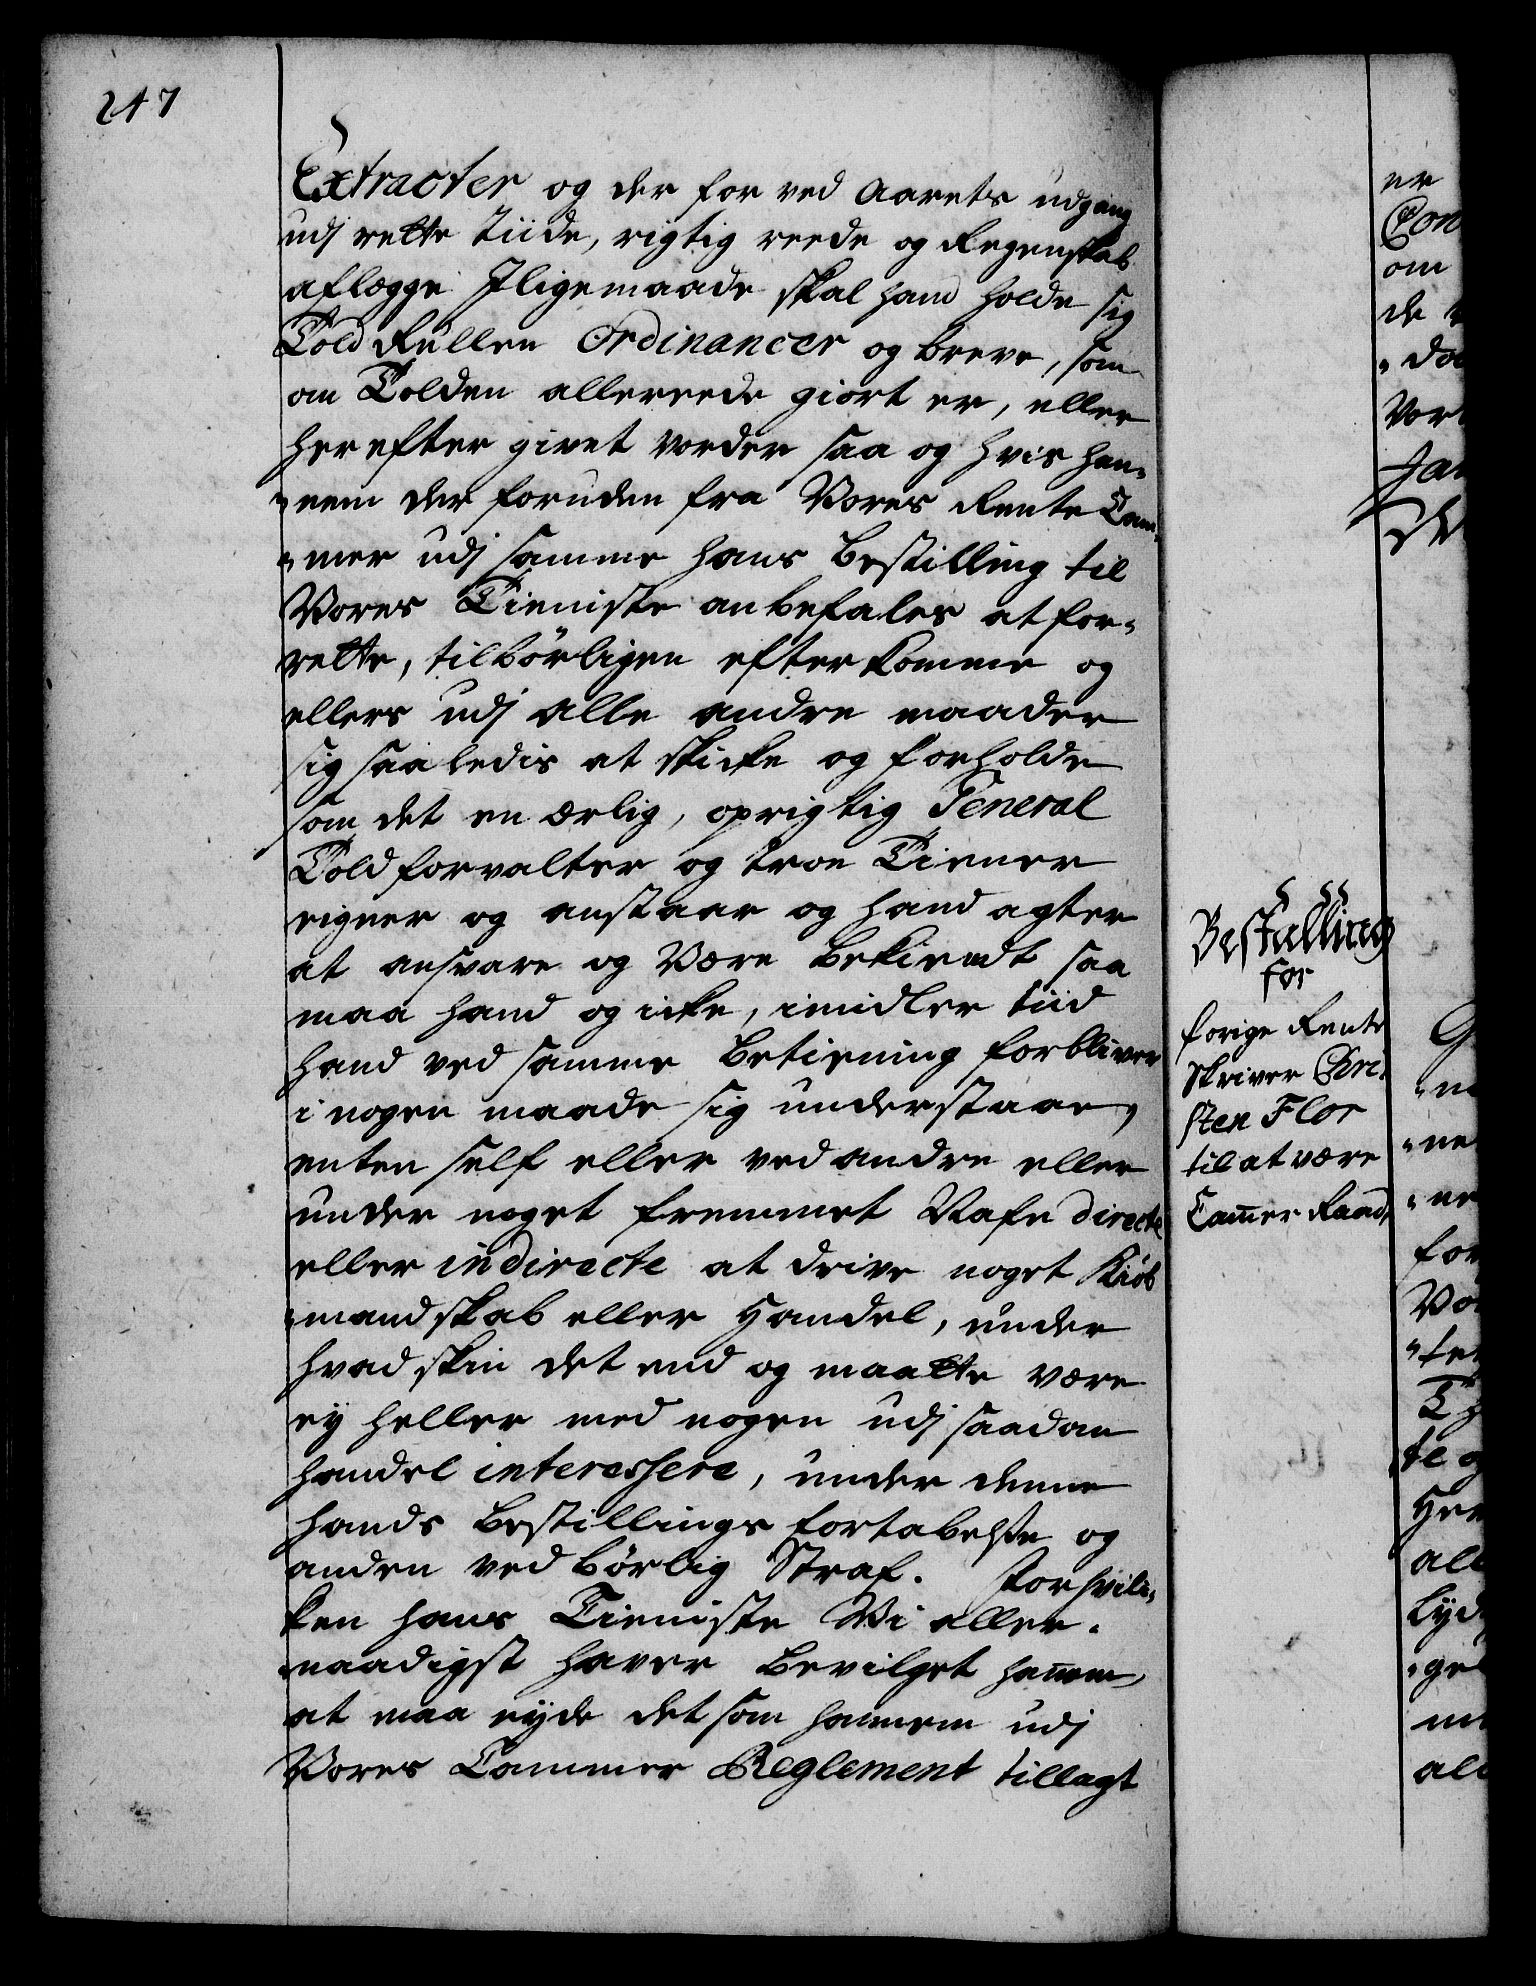 247
Extracter og der for ved Aarets udgang
udj rette Tiide, rigtig reede og Regenskab
aflegge Iligemaade skal hand holde sig
Told Rullen Ordinancer og breve, som
om Tolden allereede giort er, eller
her efter givet vorder saa og hvis han-
nem der foruden fra Vores Rente Cam-
mer udj samme hans bestilling til
Vores Tieniste anbefales at for-
rette, tilbørligen efterkomme og
ellers udj alle andre maader
sig saaledis at skicke og forholde
som det en ærlig, oprigtig General
Toldforvalter og troe Tiener
eigner og anstaar og hand agter
at ansvare og Være bekiendt saa
maa hand og icke, imidler tiid
hand ved samme betiening forbliver
i nogen maade sig understaae,
enten self eller ved andre eller
under noget fremmet Nafn directe
eller indirecte at drive noget Kiøb
mandskab eller Handel, under
hvad skin det end og maatte være
ey heller med nogen udj saadan
handel interessere, under denne
hands bestillings fortabelse og
anden vedbørlig Straf. For hvil-
ken hans Tieniste Vi aller-
naadigst haver bevilget hannem,
at maa nyde det som hannem udj
Vores Cammer Reglement tillagt
Bestalling
for
forige Rente
skriver Chri-
sten Flor
til at være
Cammer Raad,
er
Con
om
de
Vor
Jan
ne
for
te
all
lyd
ge
all